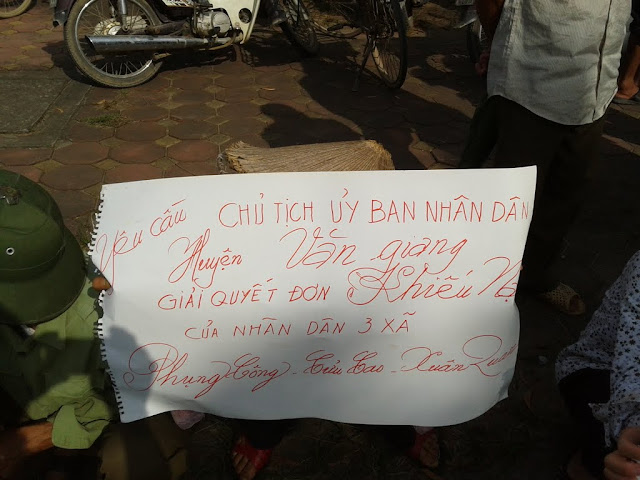 Yêu cầu CHỦ TỊCH ỦY BAN NHÂN DÂN
Huyện Văn giang
GIẢI QUYẾT ĐƠN Khiếu Nạ
CỦA NHÂN DÂN 3 XÃ
Phụng Công - Cửu Cao - Xuân Quan